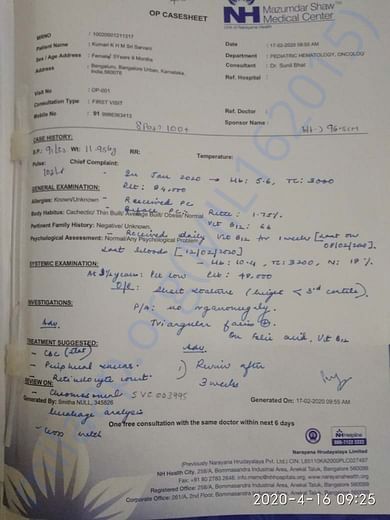 OP CASESHEET
NH
Mazumdar Shaw
Medical Center
MRNO : 10020001211317
Patient Name : Kumari K H M Sri Sarvani
Sex / Age Address : Female/ 3Years 6 Months
Address : Bengaluru, Bangalore Urban, Karnataka,
India,560076
Date : 17-02-2020 09:55 AM
Department : PEDIATRIC HEMATOLOGY, ONCOLOGY
Consultant : Dr. Sunil Bhat
Ref. Hospital :
Visit No : OP-001
Consultation Type : FIRST VISIT
Mobile No : 91
Ref. Doctor :
Sponsor Name :
SPO2: 100%
Ht -> 96.5cm
CASE HISTORY:
B.P: 91/53 Wt: 11.95kg RR: Temperature:
Pulse: Chief Complaint:
- In Jan 2020 → Hb: 5.6, TC: 3000
Plt: 84,000
GENERAL EXAMINATION:
Allergies: Known/Unknown
- Received PC
Body Habitus: Cachectic/ Thin Built/ Average Built/ Obese/ Normal
Retic: 1.75%
Vit B12: 66
Pertinent Family History: Negative/ Unknown
- Received daily Vit B12 for 1 week [last on
08/02/2020]
Psychological Assessment: Normal/Any Psychological Problem
Last bloods [12/02/2020] → Hb: 10.4, TC: 3200, N: 18%
SYSTEMIC EXAMINATION:
At 3½ years: Plt low Plt: 48,000
O/E: Short stature (height < 3rd centile).
P/A: no organomegaly.
Triangular facies +.
On folic acid, Vit B12
INVESTIGATIONS:
Adv
TREATMENT SUGGESTED:
Adv
- CBC
- Peripheral smear
- Reticulocyte count
1) Review after
3 weeks
REVIEW ON:
- Chromosomal
breakage analysis
- cross match
Generated By: Smitha NULL_345826
Generated On: 17-02-2020 09:55 AM
One free consultation with the same doctor within next 6 days
NHhelpline
Narayana Hrudayalaya Limited
(Previously Narayana Hrudayalaya Pvt. Ltd.) CIN: L85110KA2000PLC027497
NH Health City, 258/A, Bommasandra Industrial Area, Anekal Taluk, Bangalore 560099
Registered Office: 258/A, Bommasandra Industrial Area, Anekal Taluk, Bangalore 560099
2020-4-16 09:25